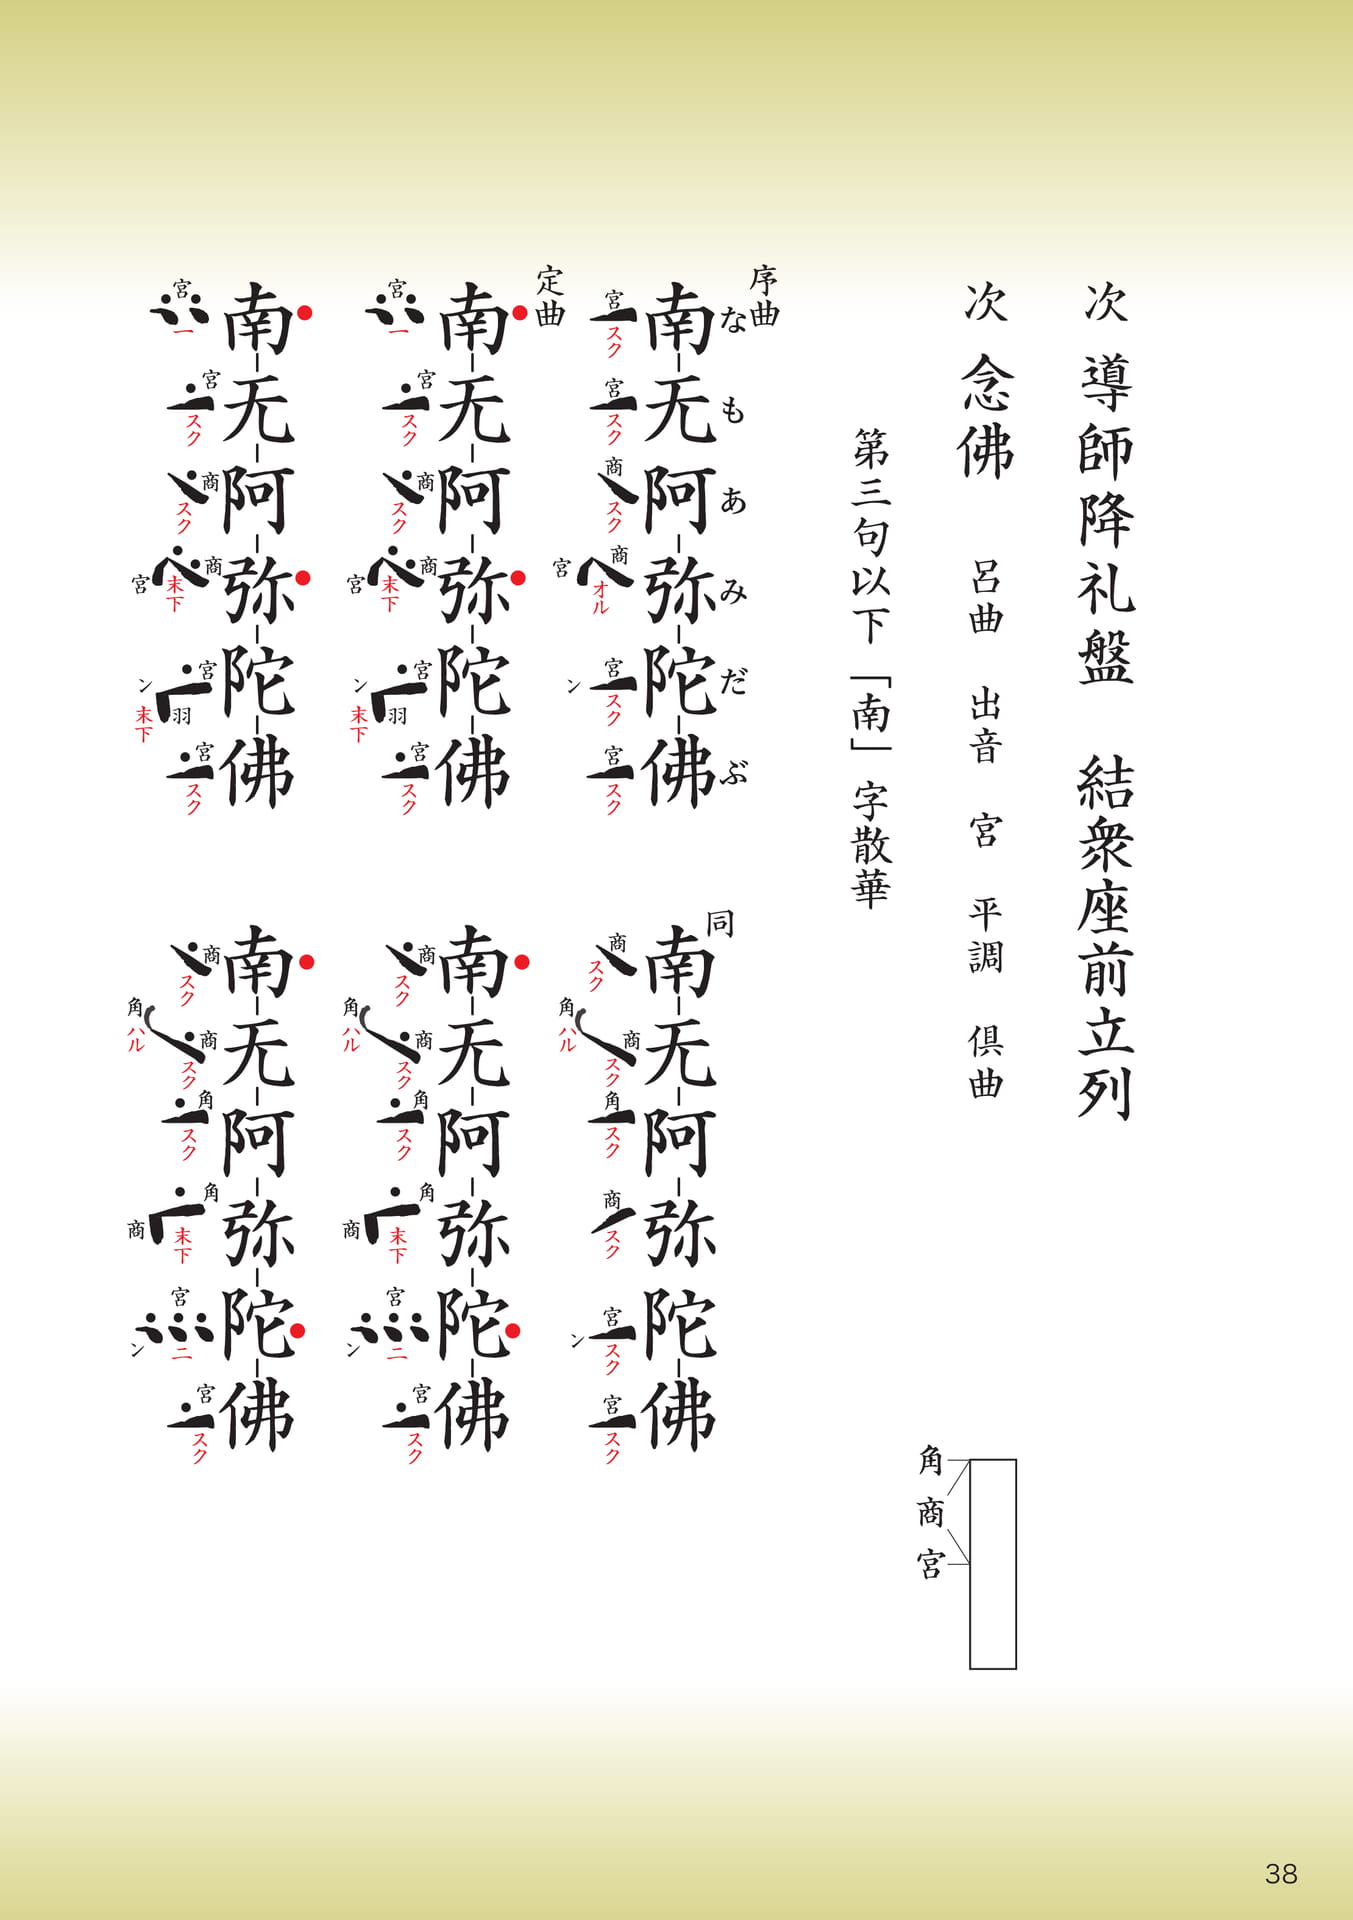 次 導師降礼盤 結衆座前立列
次 念佛 呂曲 出音 宮 平調 倶曲
角 商 宮
第三句以下「南」字散華
序曲
なもあみだぶ
南无阿弥陀佛
宮 スク
宮 スク
商 スク
商 宮 オル
宮 スク ン
宮 スク
同
南无阿弥陀佛
商 スク
商 スク 角 ハル
角 スク
商 スク
宮 スク ン
宮 スク
定曲
南无阿弥陀佛
宮 一
宮 スク
商 スク
商 宮 末下
宮 羽 ン 末下
宮 スク
南无阿弥陀佛
商 スク
商 スク 角 ハル
角 スク
角 商 末下
宮 二 ン
宮 スク
南无阿弥陀佛
宮 一
宮 スク
商 スク
商 宮 末下
宮 羽 ン 末下
宮 スク
南无阿弥陀佛
商 スク
商 スク 角 ハル
角 スク
角 商 末下
宮 二 ン
宮 スク
38